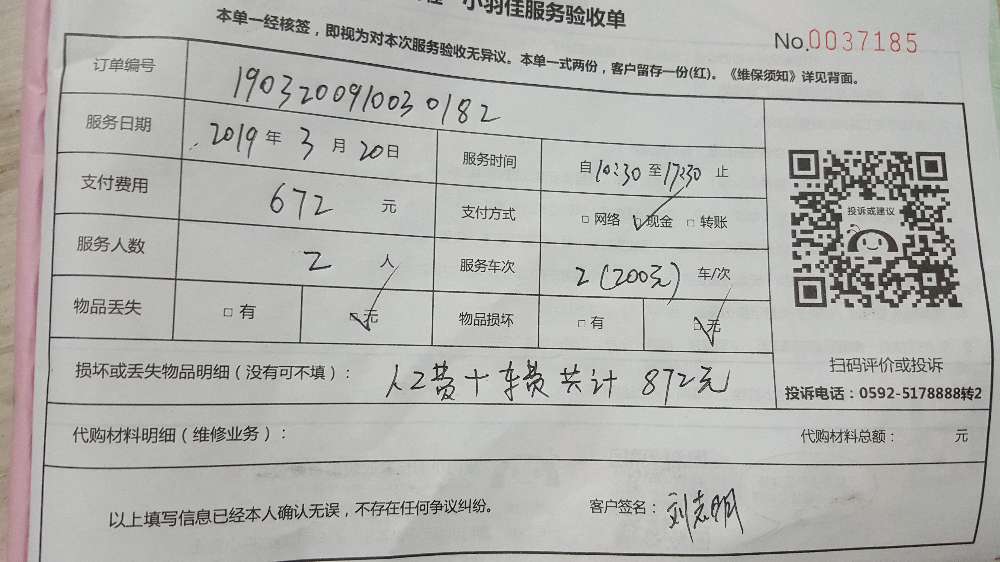 小羽佳服务验收单
No.0037185
本单一经核签，即视为对本次服务验收无异议。本单一式两份，客户留存一份(红)。《维保须知》详见背面。
订单编号 190320091003 0182
服务日期 2019年3月20日 服务时间 自10:30至17:30止
支付费用 672 元 支付方式 □网络 ☑现金 □转账
服务人数 2 人 服务车次 2(200元) 车/次
物品丢失 □有 ☑无 物品损坏 □有 ☑无
投诉或建议
扫码评价或投诉
投诉电话：0592-5178888转2
损坏或丢失物品明细（没有可不填）： 人工费+车费共计 872元
代购材料明细（维修业务）： 代购材料总额： 元
以上填写信息已经本人确认无误，不存在任何争议纠纷。 客户签名：刘志明